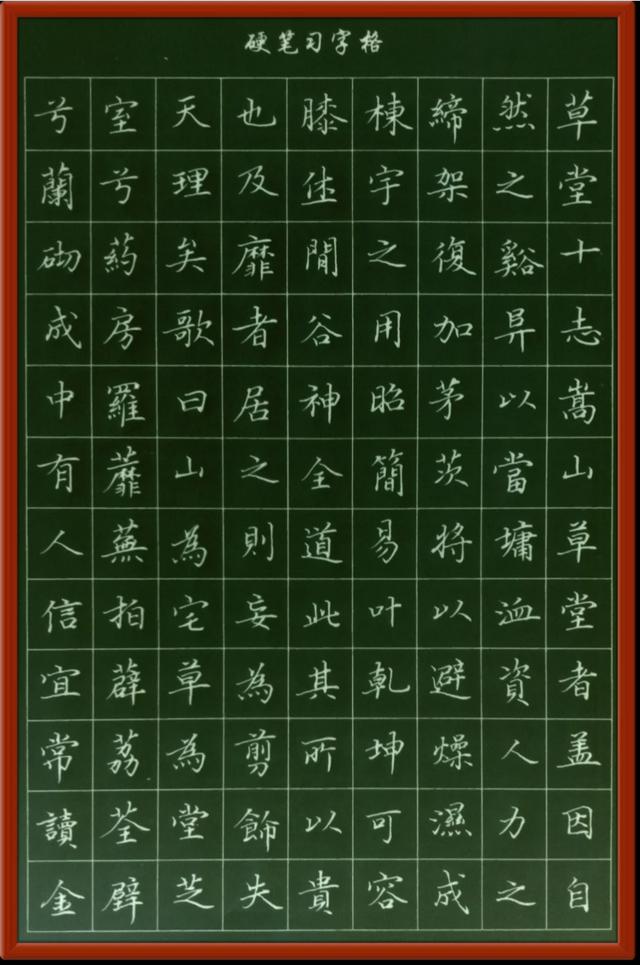 硬笔习字格
草堂十志嵩山草堂者盖因自
然之谿阜以當墉洫資人力之
締架復加茅茨將以避燥濕成
棟宇之用昭簡易叶乹坤可容
膝休閒谷神全道此其所以貴
也及靡者居之則妄為剪飾失
天理矣歌曰山為宅草為堂芝
室兮葯房羅蘼蕪拍薜荔荃壁
兮蘭砌成中有人信宜常讀金